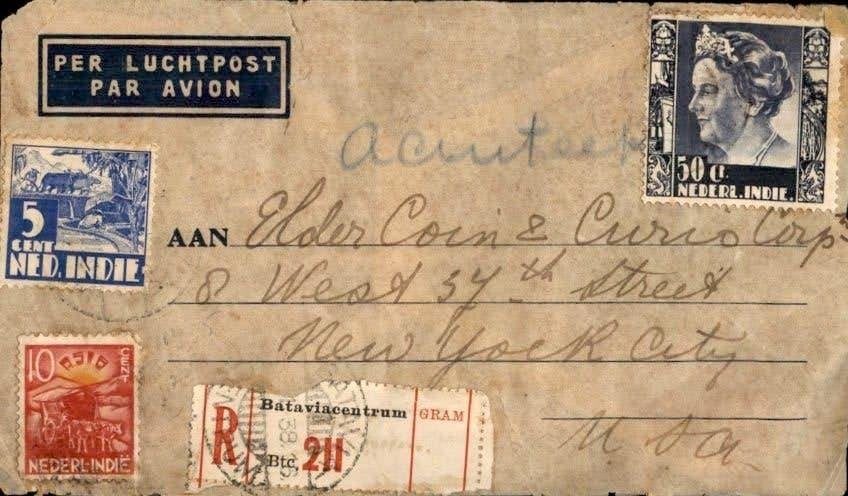 PER LUCHTPOST
PAR AVION
50 ct.
NEDERL. INDIE.
5
CENT
NED. INDIE
AAN Elder Coin & Curio Corp
8 West 37th Street
New York City
U.S.A.
10 CENT
NEDERL-INDIË
R
Bataviacentrum
GRAM
Btc. 211